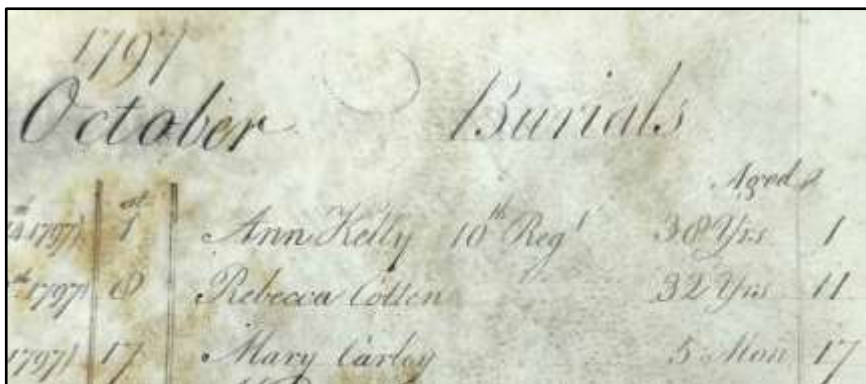 1797
October Burials
Aged
1797 1 st Ann Kelly 10th Regt 38 Yrs 1
1797 8 Rebecca Cotten 32 Yrs 11
1797 17 Mary Carley 5 Mon 17